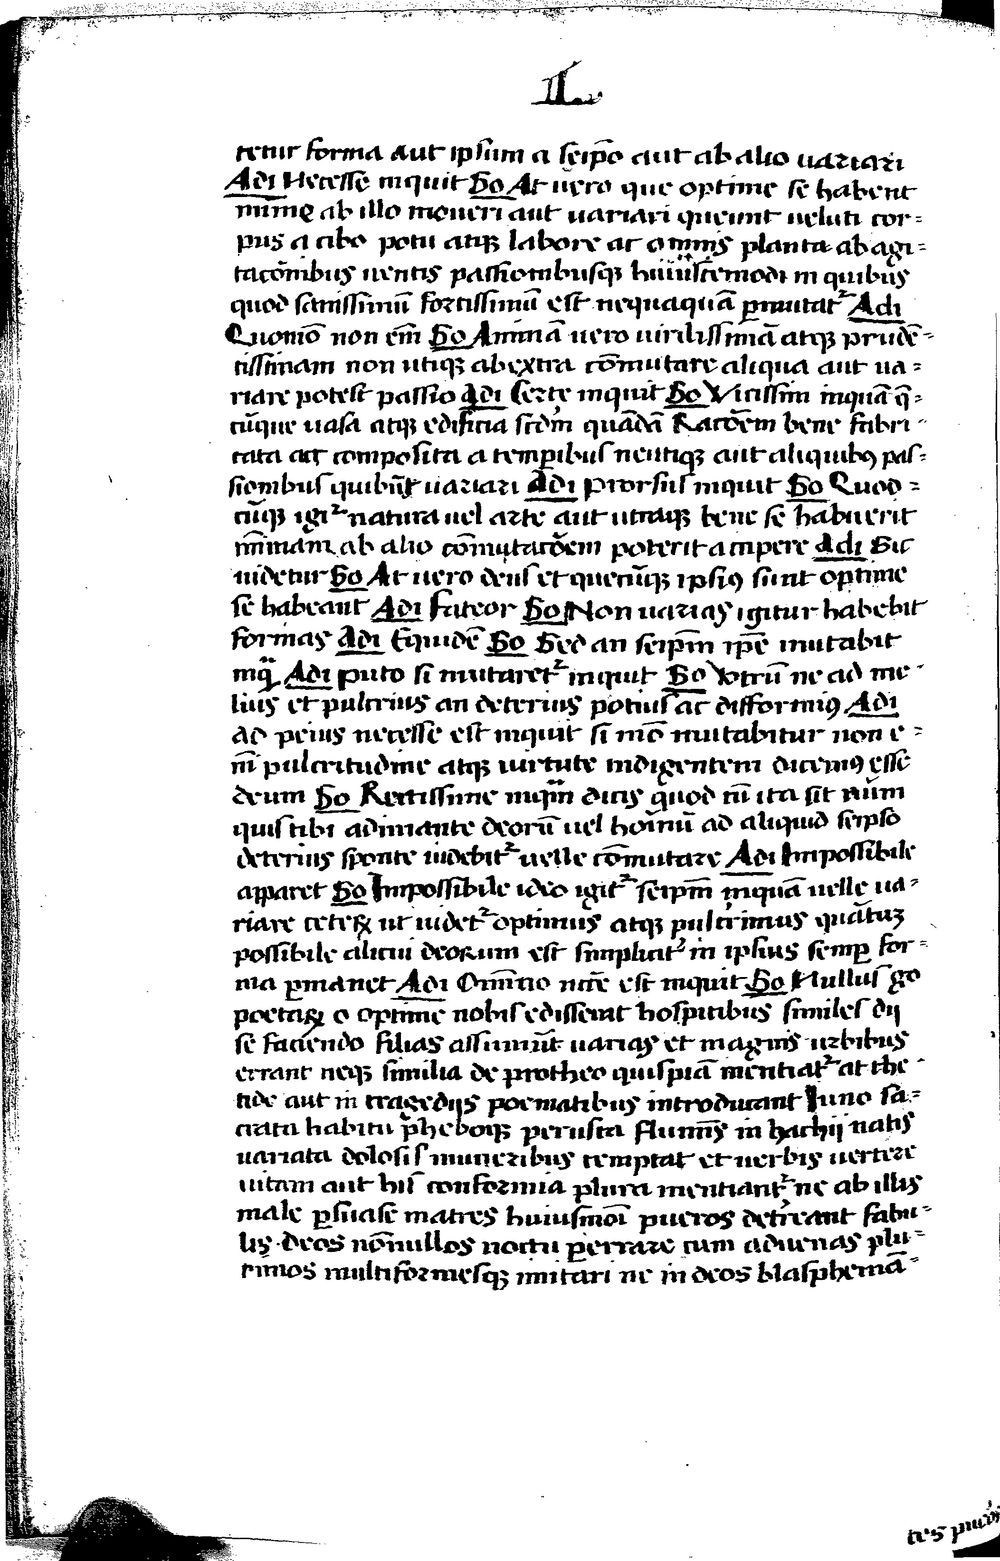 II.
tetur forma aut ipsum a seip̄o aut ab alio uariari
Adi Necesse inquit So At uero que optime se habent
minīe ab illo moueri aut uariari queunt ueluti cor=
pus a cibo potu atqꝫ labore ac omnis planta ab agi=
tacōnibus uentis passionibusqꝫ huiuscemodi in quibus
quod sanissimū fortissimū est nequaquā ꝑmutat᷑ Adi
Quomō non em̄ So Animā uero uirilissimā atqꝫ prudē=
tissimam non utiqꝫ ab extra cōmutare aliqua aut ua=
riare potest passio Adi Certe inquit So Vicissim inquā q̄=
cūque uasa atqꝫ edificia scdm̄ quādā Racōem bene fabri=
cata ac composita a temꝑibus neutiqꝫ aut aliquibꝯ pas=
sionibus quibūt uariari Adi Prorsus inquit So Quod=
cūqꝫ igit᷑ natura uel arte aut utraqꝫ bene se habuerit
minimam ab alio cōmutacōem poterit accipere Adi Sic
uidetur So At uero deus et quecūqꝫ ipsiꝯ sunt optime
se habeant Adi Fateor So Non uarias igitur habebit
formas Adi Equidē So Sed an seip̄m ip̄e mutabit
inqͣ Adi puto si mutaret᷑ inquit So Vtrū ne ad me=
lius et pulcrius an deterius potius ac difformiꝯ Adi
ad peius necesse est inquit si mō mutabitur non e=
m̄ pulcritudine atqꝫ uirtute indigentem dicemꝯ esse
deum So Rectissime inqͣm dicis quod cū ita sit nūm
quis tibi adimante deorū uel hoīnū ad aliquid seipso
deterius sponte uidebit᷑ uelle cōmutare Adi Impossibile
apparet So Impossibile ideo igit᷑ seip̄m inquā uelle ua=
riare ceteꝝ ut uidet᷑ optimus atqꝫ pulcrimus quātuꝫ
possibile alicui deorum est simplicit᷑ in ipsius semꝑ for=
ma ꝑmanet Adi Omnīo nc̄e est inquit So Nullus g̊
poetaꝝ o optime nobis edisserat hospitibus similes dij
se faciendo filias assumūt uarias et magnis urbibus
errant neqꝫ similia de protheo quispiā mentiat᷑ at the=
tide aut in tragedijs poematibus introducant Iuno sa=
crata habitu p̄heboiqꝫ perusta flumīs in hachij natis
uariata dolosis muneribus temptat et uerbis uertere
uitam aut his conformia plura mentiant᷑ ne ab illis
male ꝑsuase matres huiusmōi pueros deterreant fabu=
lis deos nōnullos noctu ꝑerrare cum aduenas plu=
rimos multiformesqꝫ imitari ne in deos blasphemā=